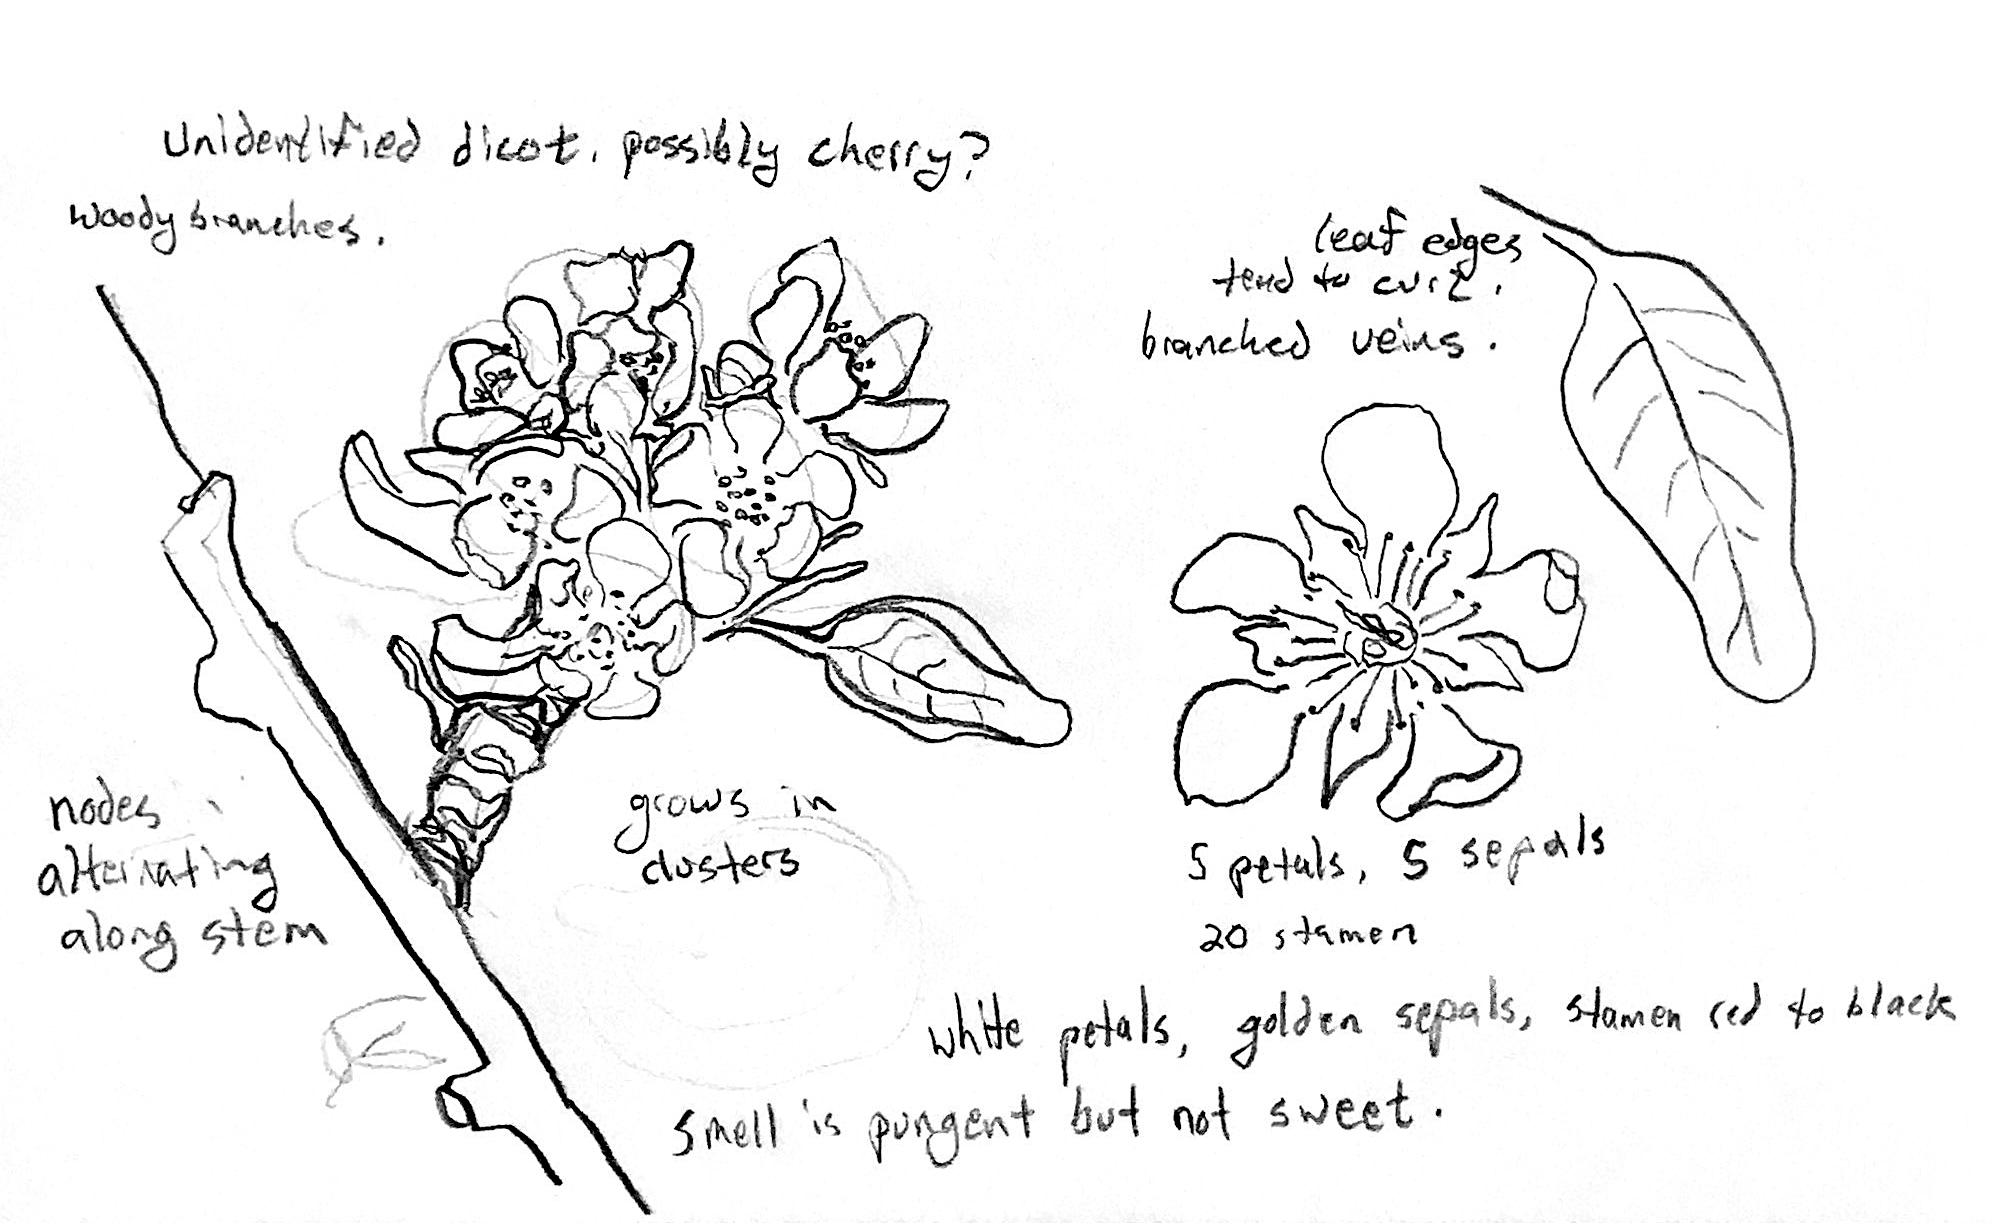 Unidentified dicot. possibly cherry?
woody branches.
leaf edges
tend to curl.
branched veins.
nodes
alternating
along stem
grows in
clusters
5 petals, 5 sepals
20 stamen
white petals, golden sepals, stamen red to black
smell is pungent but not sweet.